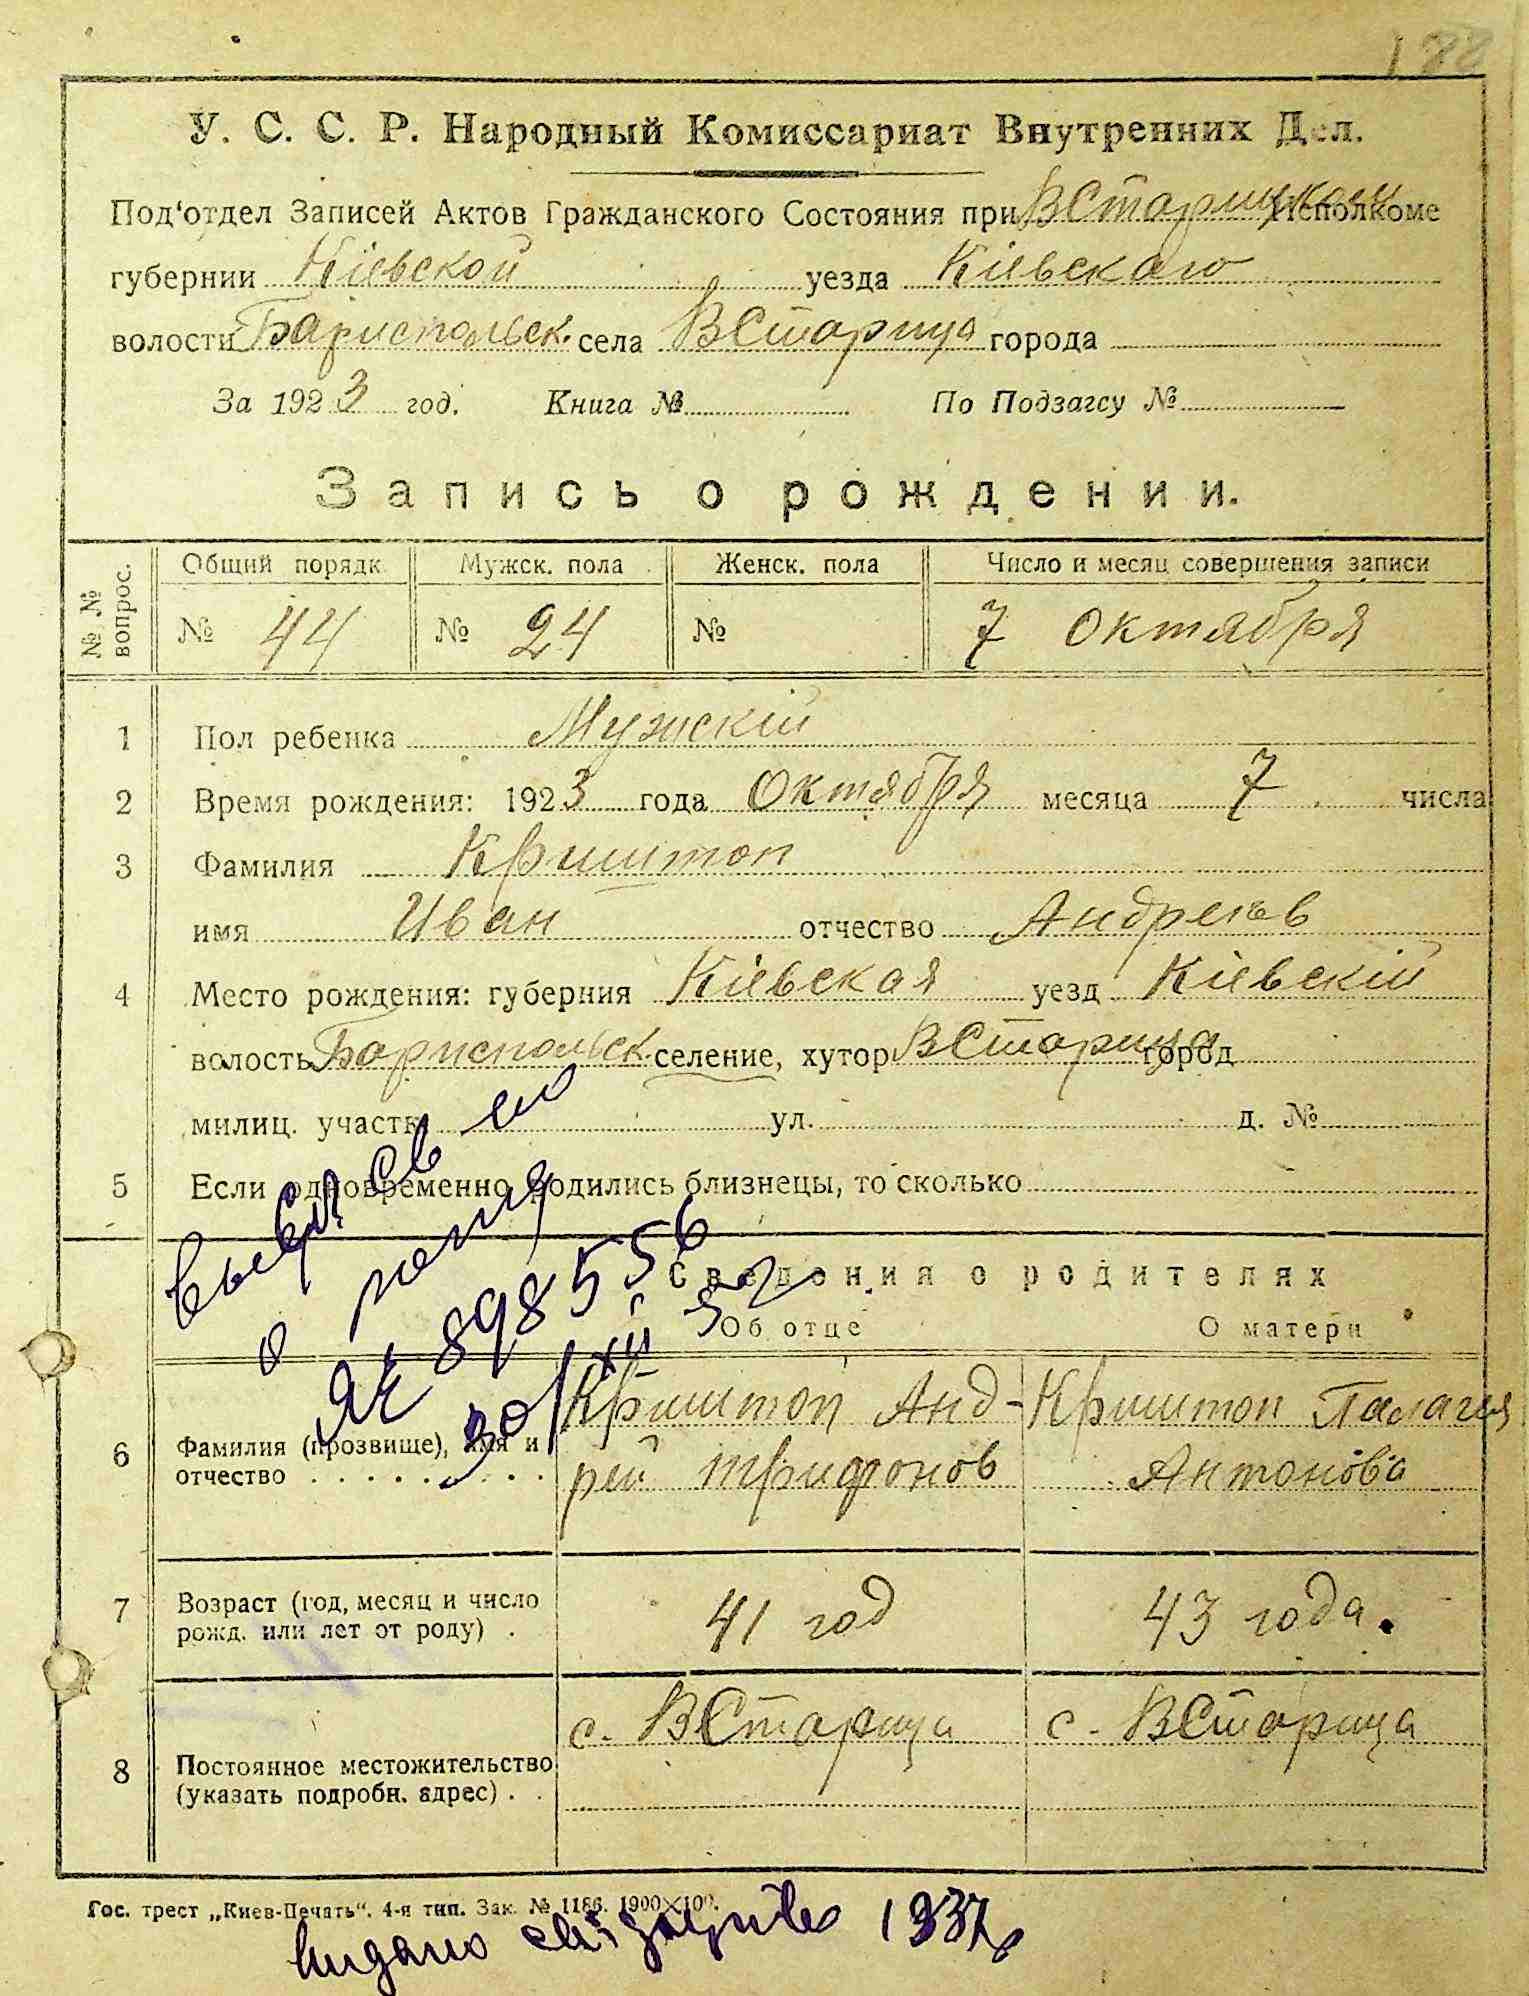 188
У. С. С. Р. Народный Комиссариат Внутренних Дел.
Под'отдел Записей Актов Гражданского Состояния при ВСтарицком Исполкоме
губернии Кіевской уезда Кіевскаго
волости Бариспольск. села ВСтарица города
За 1923 год. Книга № По Подзагсу №
Запись о рождении.
№ № вопрос. Общий порядк. Мужск. пола Женск. пола Число и месяц совершения записи
№ 44 № 24 № 7 Октября
1 Пол ребенка Мужскій
2 Время рождения: 1923 года Октября месяца 7 числа
3 Фамилия Криштоп
имя Иван отчество Андреев
4 Место рождения: губерния Кіевская уезд Кіевскій
волость Бориспольск. селение, хутор ВСтарица город
милиц. участк ул. д. №
5 Если одновременно родились близнецы, то сколько
Сведения о родителях
Об отце О матери
6 Фамилия (прозвище), имя и отчество Криштоп Анд-рей Трифонов Криштоп Палагея Антонова
7 Возраст (год, месяц и число рожд. или лет от роду) 41 год 43 года.
8 Постоянное местожительство (указать подробн. адрес) с. ВСтарица с. ВСтарица
св во
о
ЯЧ 898556
30/XII 52
Гос. трест „Киев-Печать". 4-я тип. Зак. № 1186. 1900×100.
Видано 1937